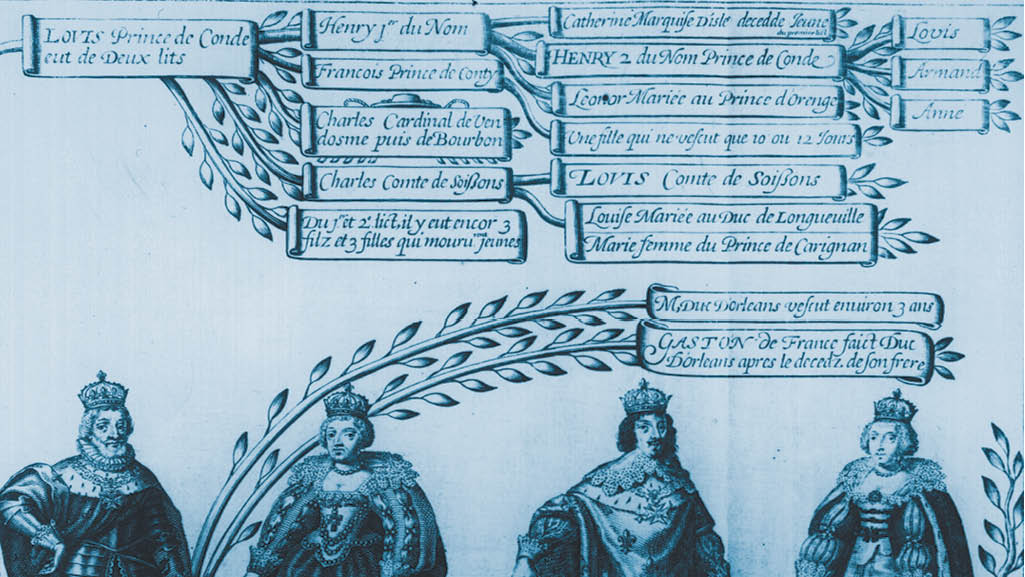 LOVIS Prince de Conde
eut de Deux lits
Henry 1er du Nom
Francois Prince de Conty
Charles Cardinal de Ven
dosme puis de Bourbon
Charles Comte de Soißons
Du 1r et 2e lict, il y eut encor 3
filz et 3 filles qui mouru rent jeunes
Catherine Marquise Disle decedde Jeune
du premier lict
HENRY 2 du Nom Prince de Conde
Leonor Mariée au Prince d'orenge
Vne fille qui ne vescut que 10 ou 12 Jours
LOVIS Comte de Soißons
Louise Mariée au Duc de Longueville
Marie femme du Prince de Carignan
Lovis
Armand
Anne
M. Duc Dorleans vescut environ 3 ans
GASTON de France faict Duc
Dorleans apres le decedz. de son frere